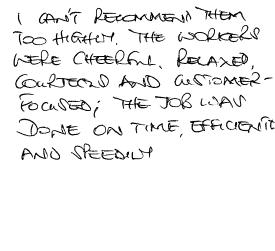 I CAN'T RECOMMEND THEM
TOO HIGHLY. THE WORKERS
WERE CHEERFUL, RELAXED,
COURTEOUS AND CUSTOMER-
FOCUSED; THE JOB WAS
DONE ON TIME, EFFICIENTLY
AND SPEEDILY